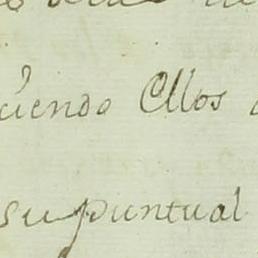 ciendo Ellos
su puntual